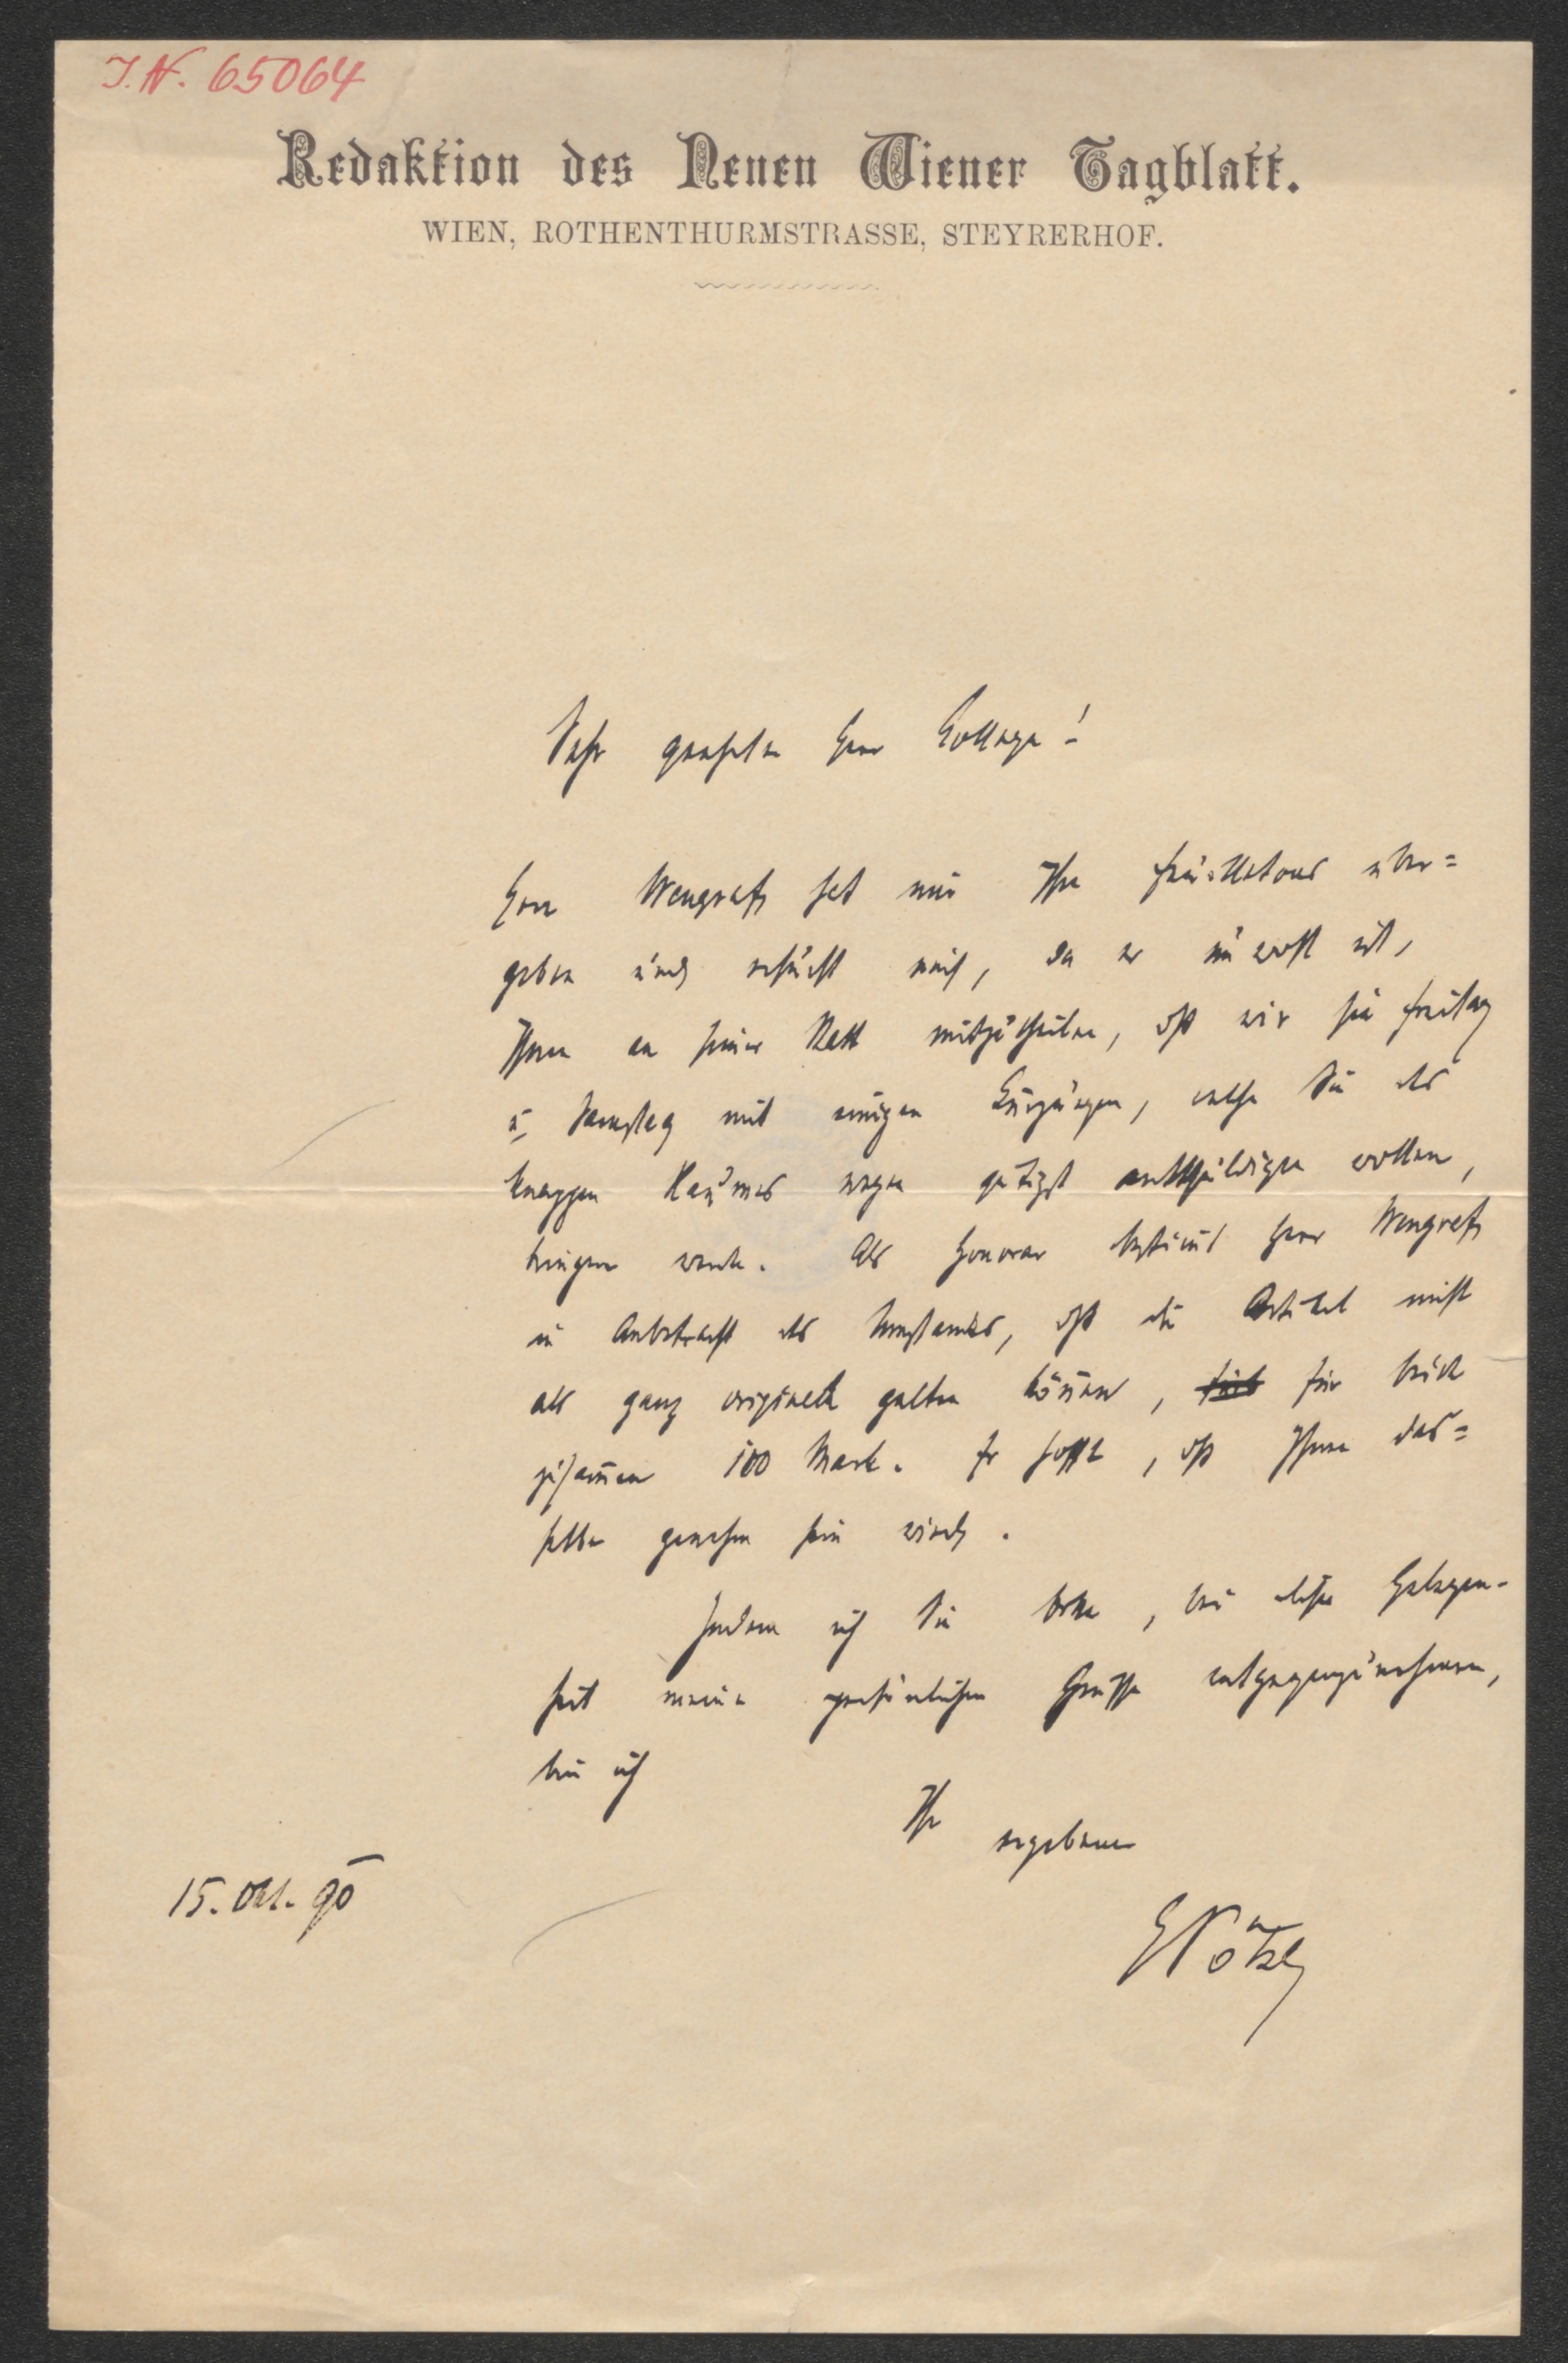 I.N. 65064
Redaktion des Neuen Wiener Tagblatt.
WIEN, ROTHENTHURMSTRASSE, STEYRERHOF.
Sehr geehrter Herr Kollege!
Herr Wengraf hat mir Ihre Feuilletons über=
geben und ersucht mich, da er unwohl ist,
Ihnen an seiner Statt mitzutheilen, daß wir sie Freitag
u. Samstag mit einigen Kürzungen, welche Sie des
knappen Raumes wegen gütigst entschuldigen wollen,
bringen werden. Als Honorar bestimt Herr Wengraf
in Anbetracht des Umstandes, daß die Artikel nicht
als ganz originell gelten können, für beide
zusammen 100 Mark. Er hofft, daß Ihnen das=
selbe genehm sein wird.
Indem ich Sie bitte, bei dieser Gelegen-
heit meine persönlichen Grüße entgegenzunehmen,
bin ich
Ihr ergebener
15. Okt. 90
EPötzl